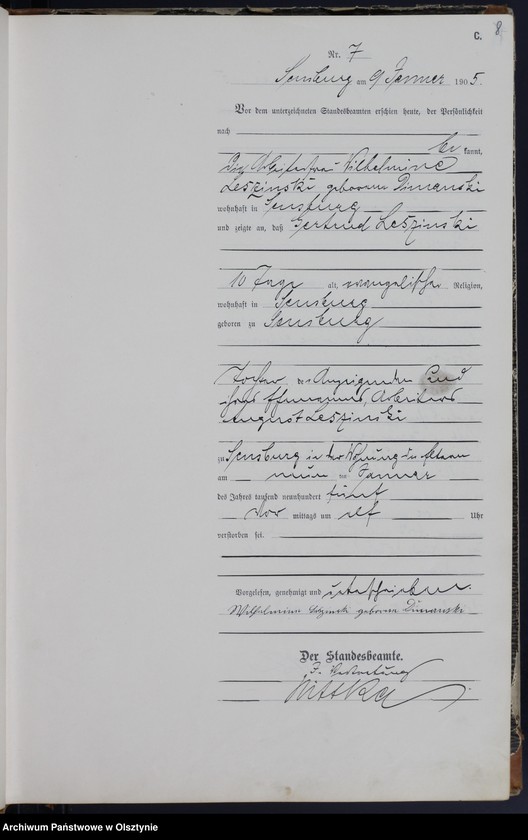 C. 8
Nr. 7
Sensburg am 9 Januar 1905.
Vor dem unterzeichneten Standesbeamten erschien heute, der Persönlichkeit
nach
be kannt,
die Arbeiterfrau Wilhelmine
Leszinski geborene Dimanski
wohnhaft in Sensburg
und zeigte an, daß Gertrud Leszinski
10 Tage alt, evangelischer Religion,
wohnhaft in Sensburg
geboren zu Sensburg
Tochter der Anzeigenden und
ihres Ehemannes, Arbeiters
August Leszinski
zu Sensburg in der Wohnung der Eltern
am neun ten Januar
des Jahres tausend neunhundert fünf
Vor mittags um elf Uhr
verstorben sei.
Vorgelesen, genehmigt und unterschrieben.
Wilhelmine geborene Dimanski
Der Standesbeamte.
In Vertretung
Archiwum Państwowe w Olsztynie